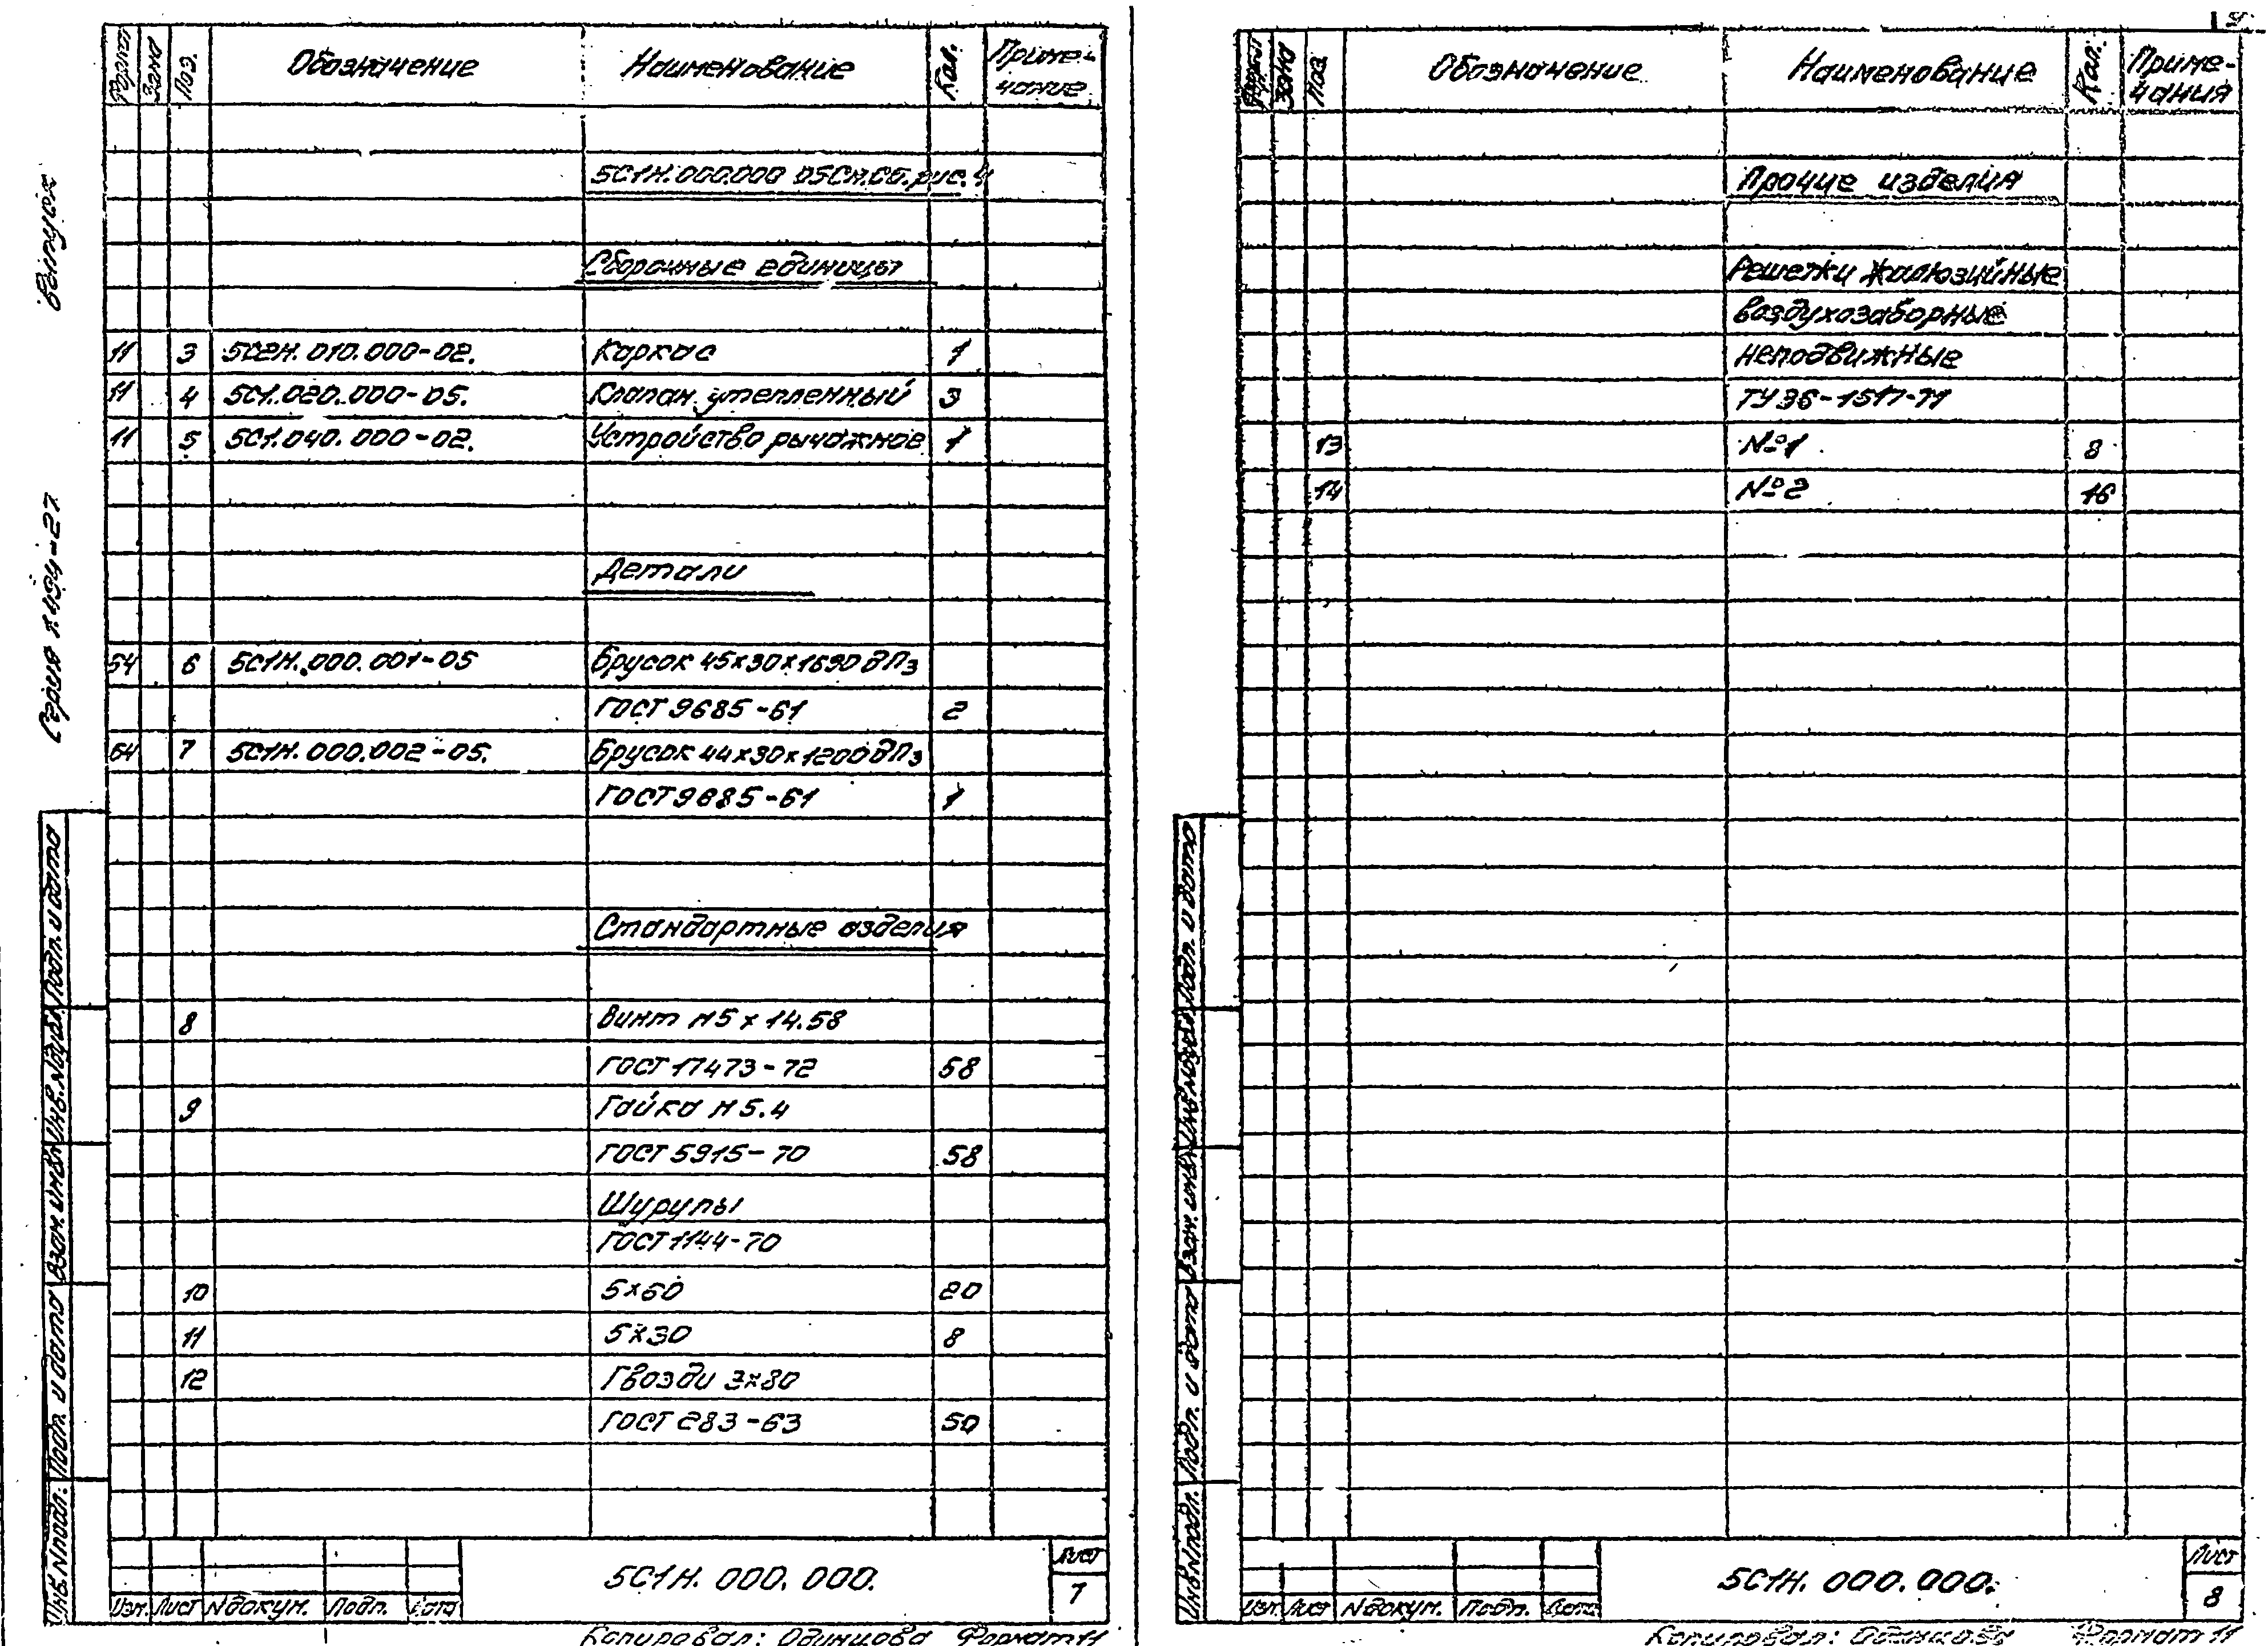 Формат Зона Поз. Обозначение Наименование Кол. Приме-
чание
5С1Н.000.000 05См.сб.рис.4
Сборочные единицы
11 3 5С2Н.010.000-02. Каркас 1
11 4 5С1.020.000-05. Клапан утепленный 3
11 5 5С1.040.000-02. Устройство рычажное 1
Детали
64 6 5С1Н.000.001-05 Брусок 45х30х1690 ВП3
ГОСТ 9685-61 2
64 7 5С1Н.000.002-05. Брусок 44х30х1200 ВП3
ГОСТ 9685-61 1
Стандартные изделия
8 Винт М5 х 14.58
ГОСТ 17473-72 58
9 Гайка М5.4
ГОСТ 5915-70 58
Шурупы
ГОСТ 1144-70
10 5х60 20
11 5х30 8
12 Гвозди 3х80
ГОСТ 283-63 50
5С1Н.000.000.
Лист
7
Изм. Лист № докум. Подп. Дата
Копировал: Одинцова Формат 11
выпуск
Серия 1.494-27
Подп. и дата
Инв. № дубл.
Взам. инв. №
Подп. и дата
Инв. № подл.
9
Формат Зона Поз. Обозначение Наименование Кол. Приме-
чания
Прочие изделия
Решетки жалюзийные
воздухозаборные
неподвижные
ТУ36-1517-71
13 №1 8
14 №2 16
5С1Н.000.000.
Лист
8
Изм. Лист № докум. Подп. Дата
Копировал: Одинцова Формат 11
Подп. и дата
Инв. № дубл.
Взам. инв. №
Подп. и дата
Инв. № подл.